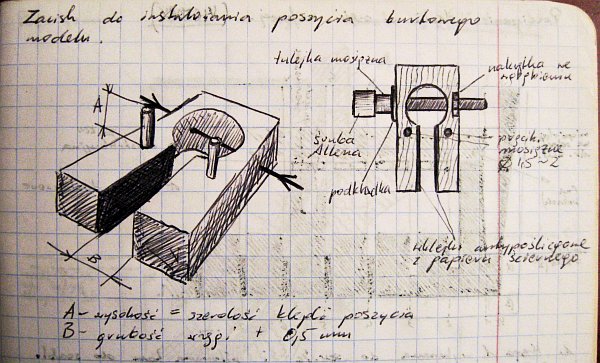 Zacisk do instalowania poszycia burtowego
modelu.
A
B
tulejka mosiężna
nakrętka we
śruba
Allena
podkładka
pręciki
mosiężne
Ø 1,5~2
wklejki antypoślizgowe
z papieru ściernego
A - wysokość = szerokość klepki poszycia
B - grubość wręgi + 0,5 mm